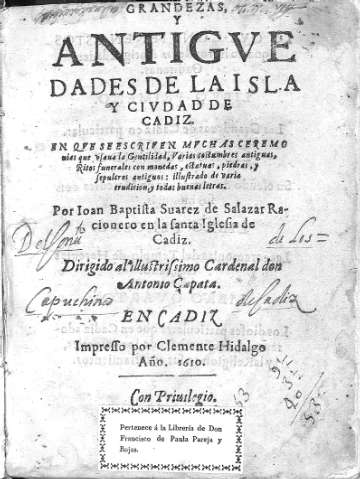 GRANDEZAS,
Y
ANTIGVE
DADES DE LA ISLA
Y CIVDAD DE
CADIZ.
EN QVE SE ESCRIVEN MVCHAS CEREMO
nias que vsaua la Gentilidad, Varias costumbres antiguas,
Ritos funerales con monedas, estatuas, piedras, y
sepulcros antiguos: illustrado de varia
erudicion, y todas buenas letras.
Por Ioan Baptista Suarez de Salazar Ra-
cionero en la santa Iglesia de
Cadiz.
de los=
Dirigido al Illustrissimo Cardenal don
Antonio Çapata.
Capuchino
de Cadiz
EN CADIZ
Impresso por Clemente Hidalgo
Año. 1610.
Con Priuilegio.
53
Pertenece á la Librería de Don
Francisco de Paula Pareja y
Rojas.